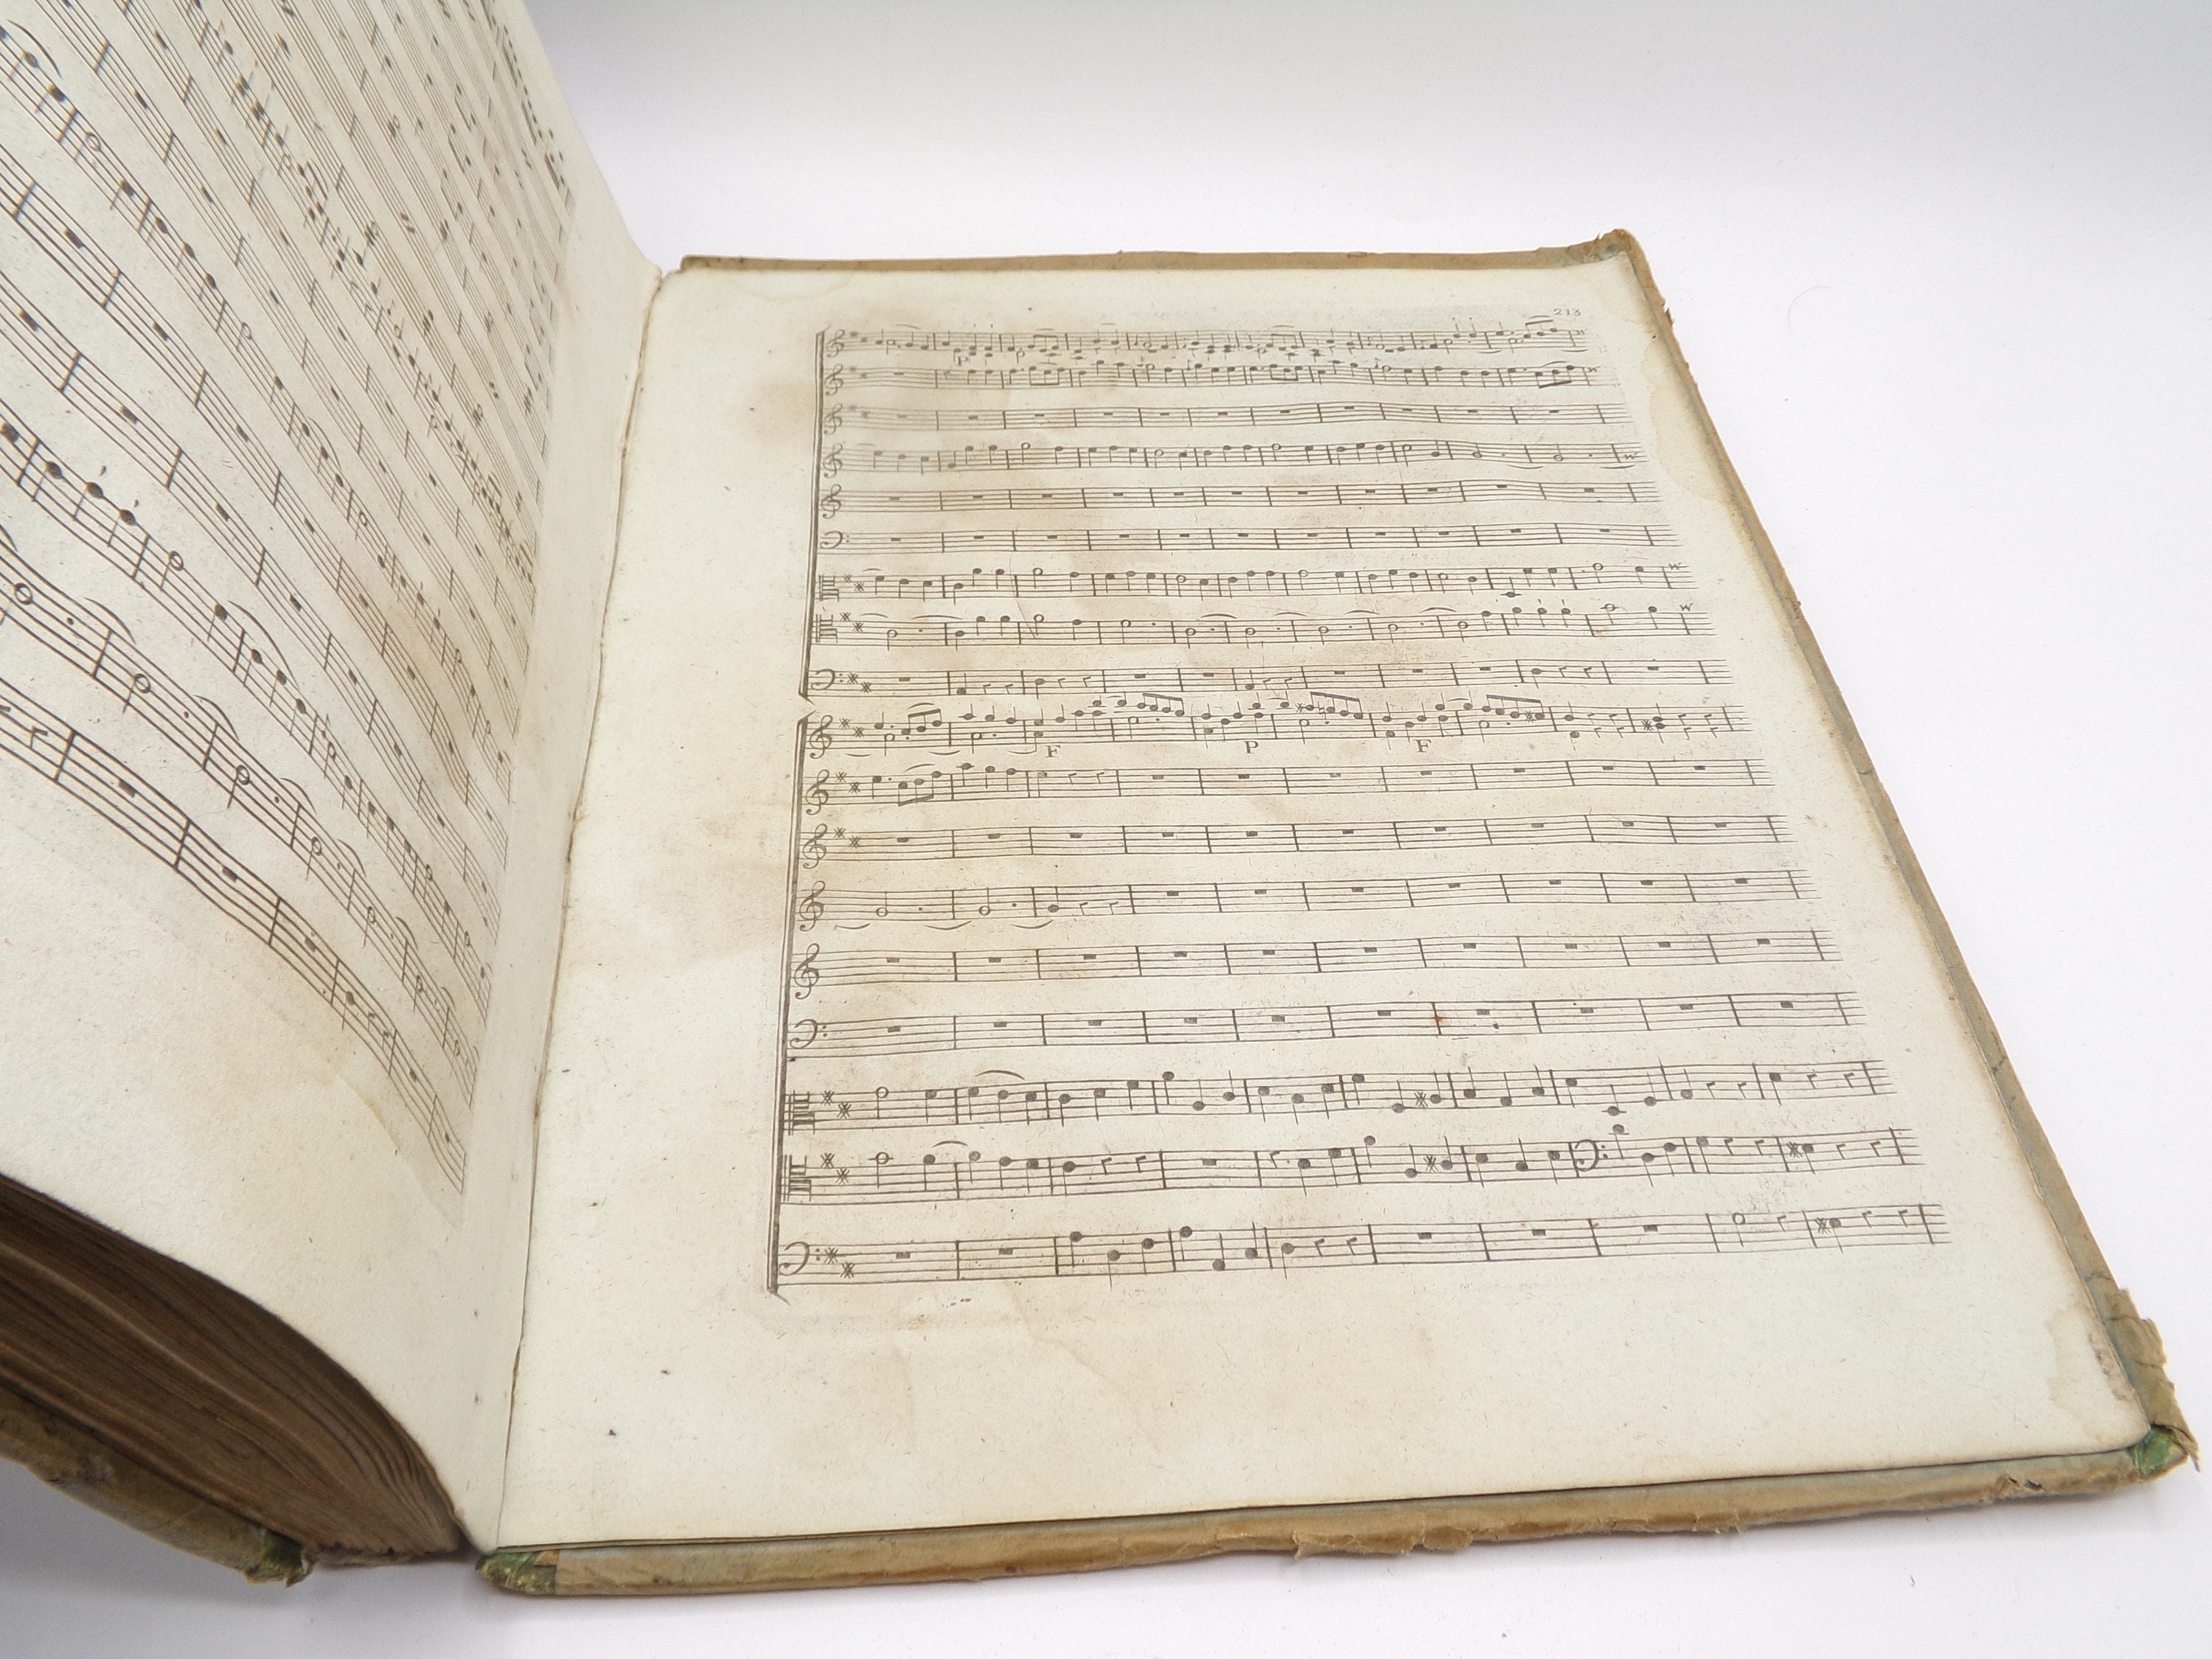 213
P
F P F